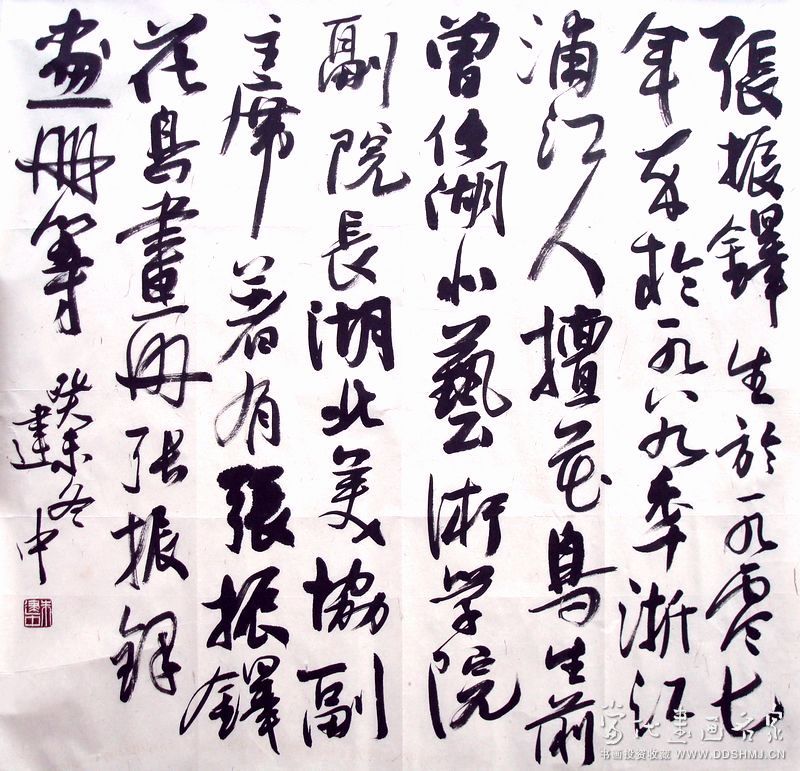 張振鐸生於一九零七
年卒於一九八九年浙江
浦江人擅花鳥生前
曾任湖北藝術学院
副院長湖北美協副
主席著有張振鐸
花鳥畫册张振鐸
画册等
癸未冬
建中
朱建中
当代書画名家
书画投资收藏 WWW.DDSHMJ.CN